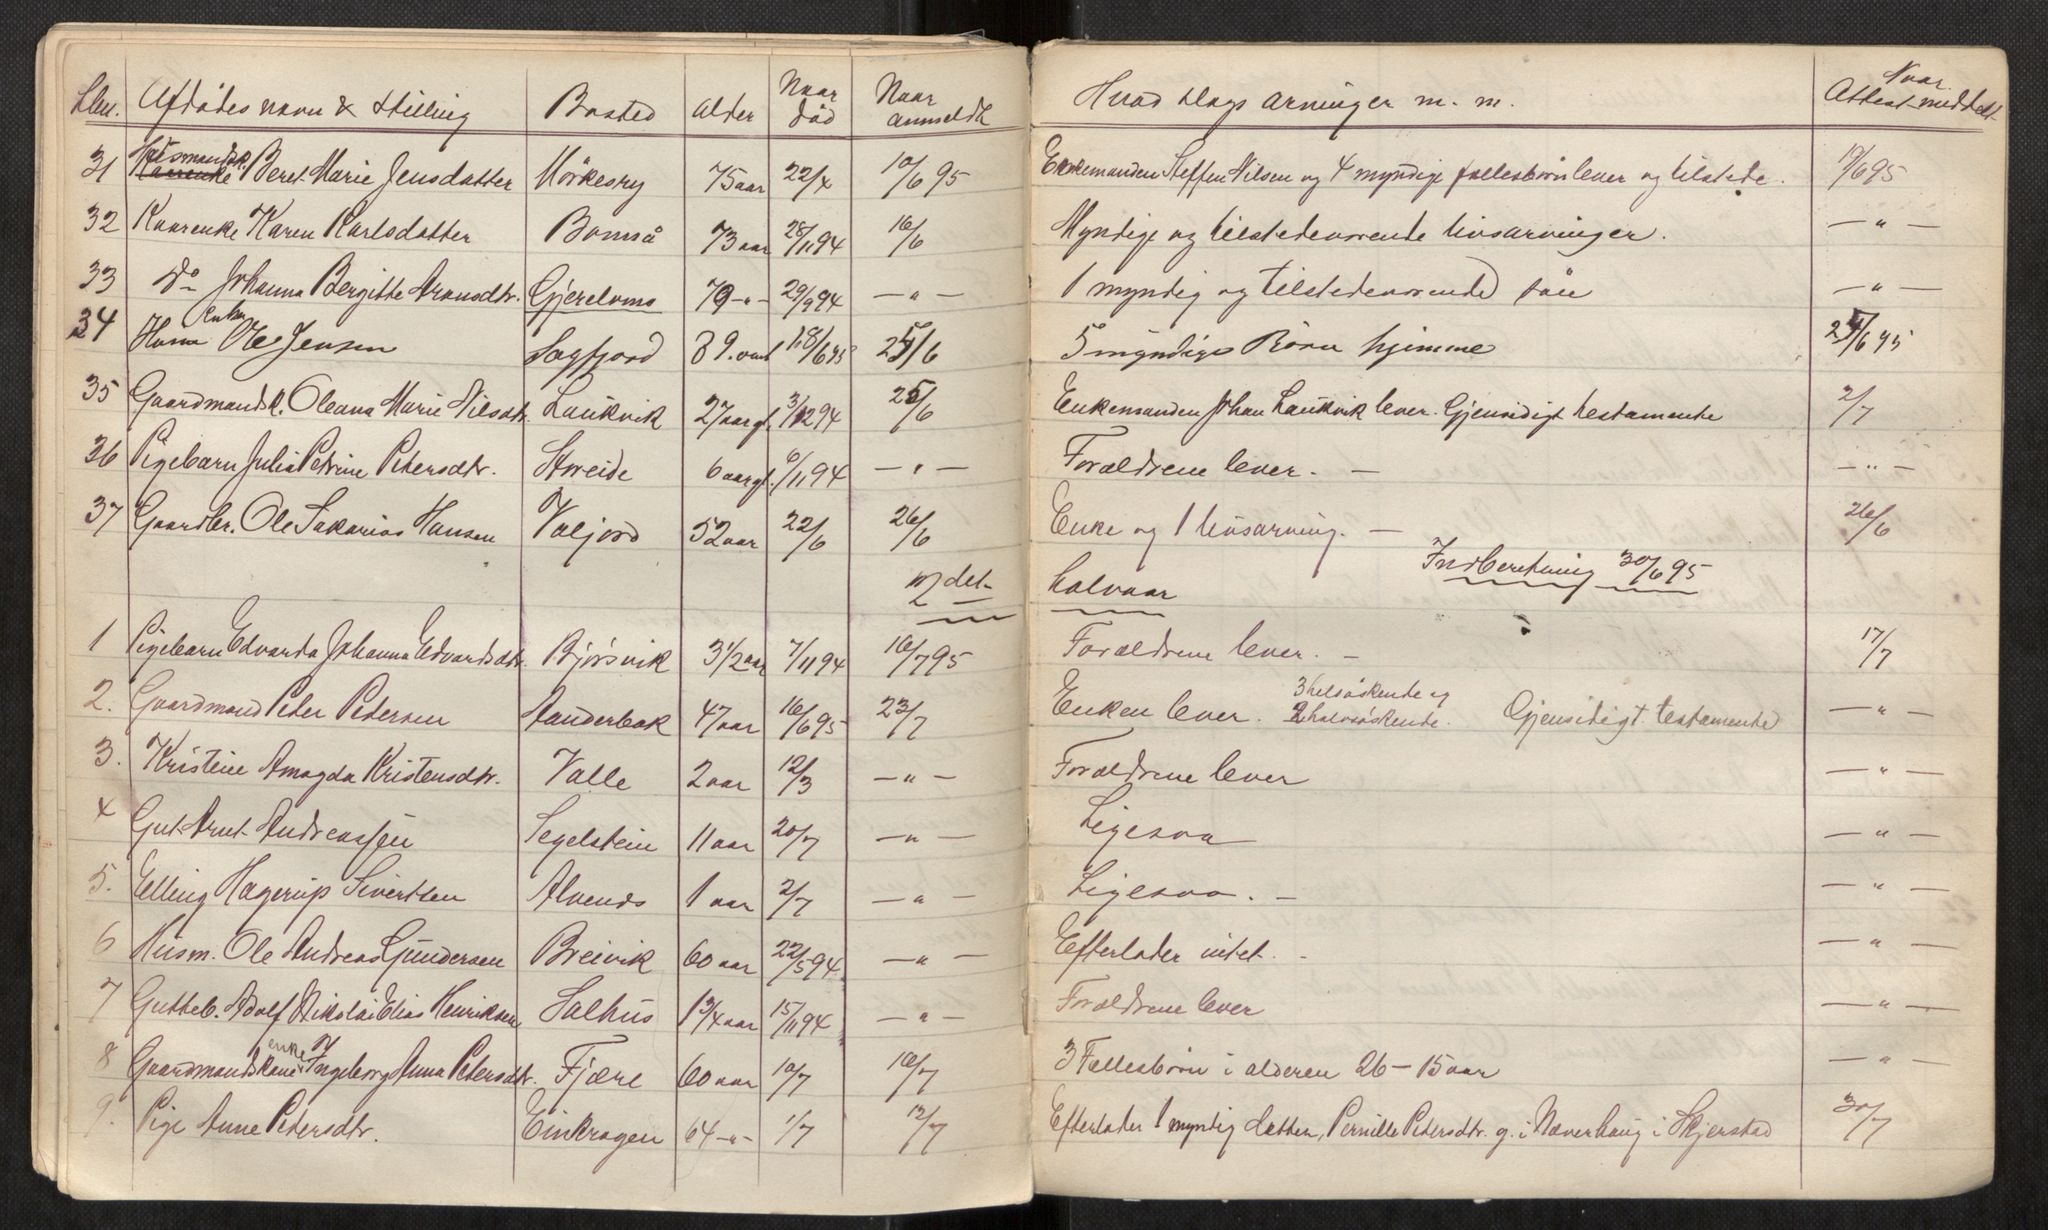 Lbn. Afdödes navn & stilling Bosted Alder Naar död Naar anmeldt Hvad slags arvinger m. m. Naar Attest meddelt
31 Husmandsk. Beret Marie Jensdatter Mörkesvy 75 aar 22/4 10/6 95 Enkemanden Steffen Nilsen og 4 myndige fællesbörn lever og tilstede. 10/6 95
32 Kaarenke Karen Karlsdatter Bomså 73 aar 28/11 94 16/6 Myndige og tilstedeværende livsarvinger. —"—
33 Do Johanna Bergitte Aronsdtr. Gjerelvmo 79 -"- 29/9 94 —"— 1 myndig og tilstedeværende sön —"—
34 Husm Enkm Ole Jensen Sagfjord 89. aar 18/6 95 25/6 5 myndige Börn hjemme 25/6 95
35 Gaardmandsk. Oleana Marie Nilsdtr. Laukvik 27 aar gl. 3/12 94 25/6 Enkemanden Johan Laukvik lever. Gjensidigt testamente 2/7
36 Pigebarn Julia Petrine Petersdtr. Storeide 6 aar gl. 6/11 94 —"— Forældrene lever. — —"—
37 Gaardbr. Ole Sakarias Hansen Valjord 52 aar 22/6 26/6 Enke og 1 livsarving. — 26/6
2det halvaar Indberetning 30/6 95
1 Pigebarn Edvarda Johanna Edvardsdtr. Bjørsvik 3 1/2 aar 7/11 94 16/7 95 Forældrene lever. — 17/7
2. Gaardmand Peter Petersen Aanderbak 47 aar 16/6 95 23/7 Enken lever. 3 helsöskende og 2 halvsöskende. Gjensidigt testamente —"—
3. Kristine Amagda Kristensdtr. Valle 2 aar 12/3 —"— Forældrene lever —"—
4 Gut Arnt Andreassen Segelstein 11 aar 20/7 —"— Ligesaa —"—
5. Elling Hagerup Sivertsen Alvenes 1 aar 2/7 —"— Ligesaa. — —"—
6 Husm. Ole Andreas Gundersen Breivik 60 aar 22/5 94 —"— Efterlader intet. - —"—
7 Gutteb. Adolf Nikolai Elias Henriksen Salhus 1 3/4 aar 15/11 94 —"— Forældrene lever —"—
8 Gaardmandskone enke Ingeborg Anna Petersdtr. Fjære 60 aar 10/7 16/7 3 Fællesbörn i alderen 26 – 15 aar —"—
9. Pige Anne Petersdtr. Einkragen 64 -"- 1/7 12/7 Efterlader 1 myndig datter, Pernille Petersdtr. g. i Næverhaug i Skjerstad 30/7